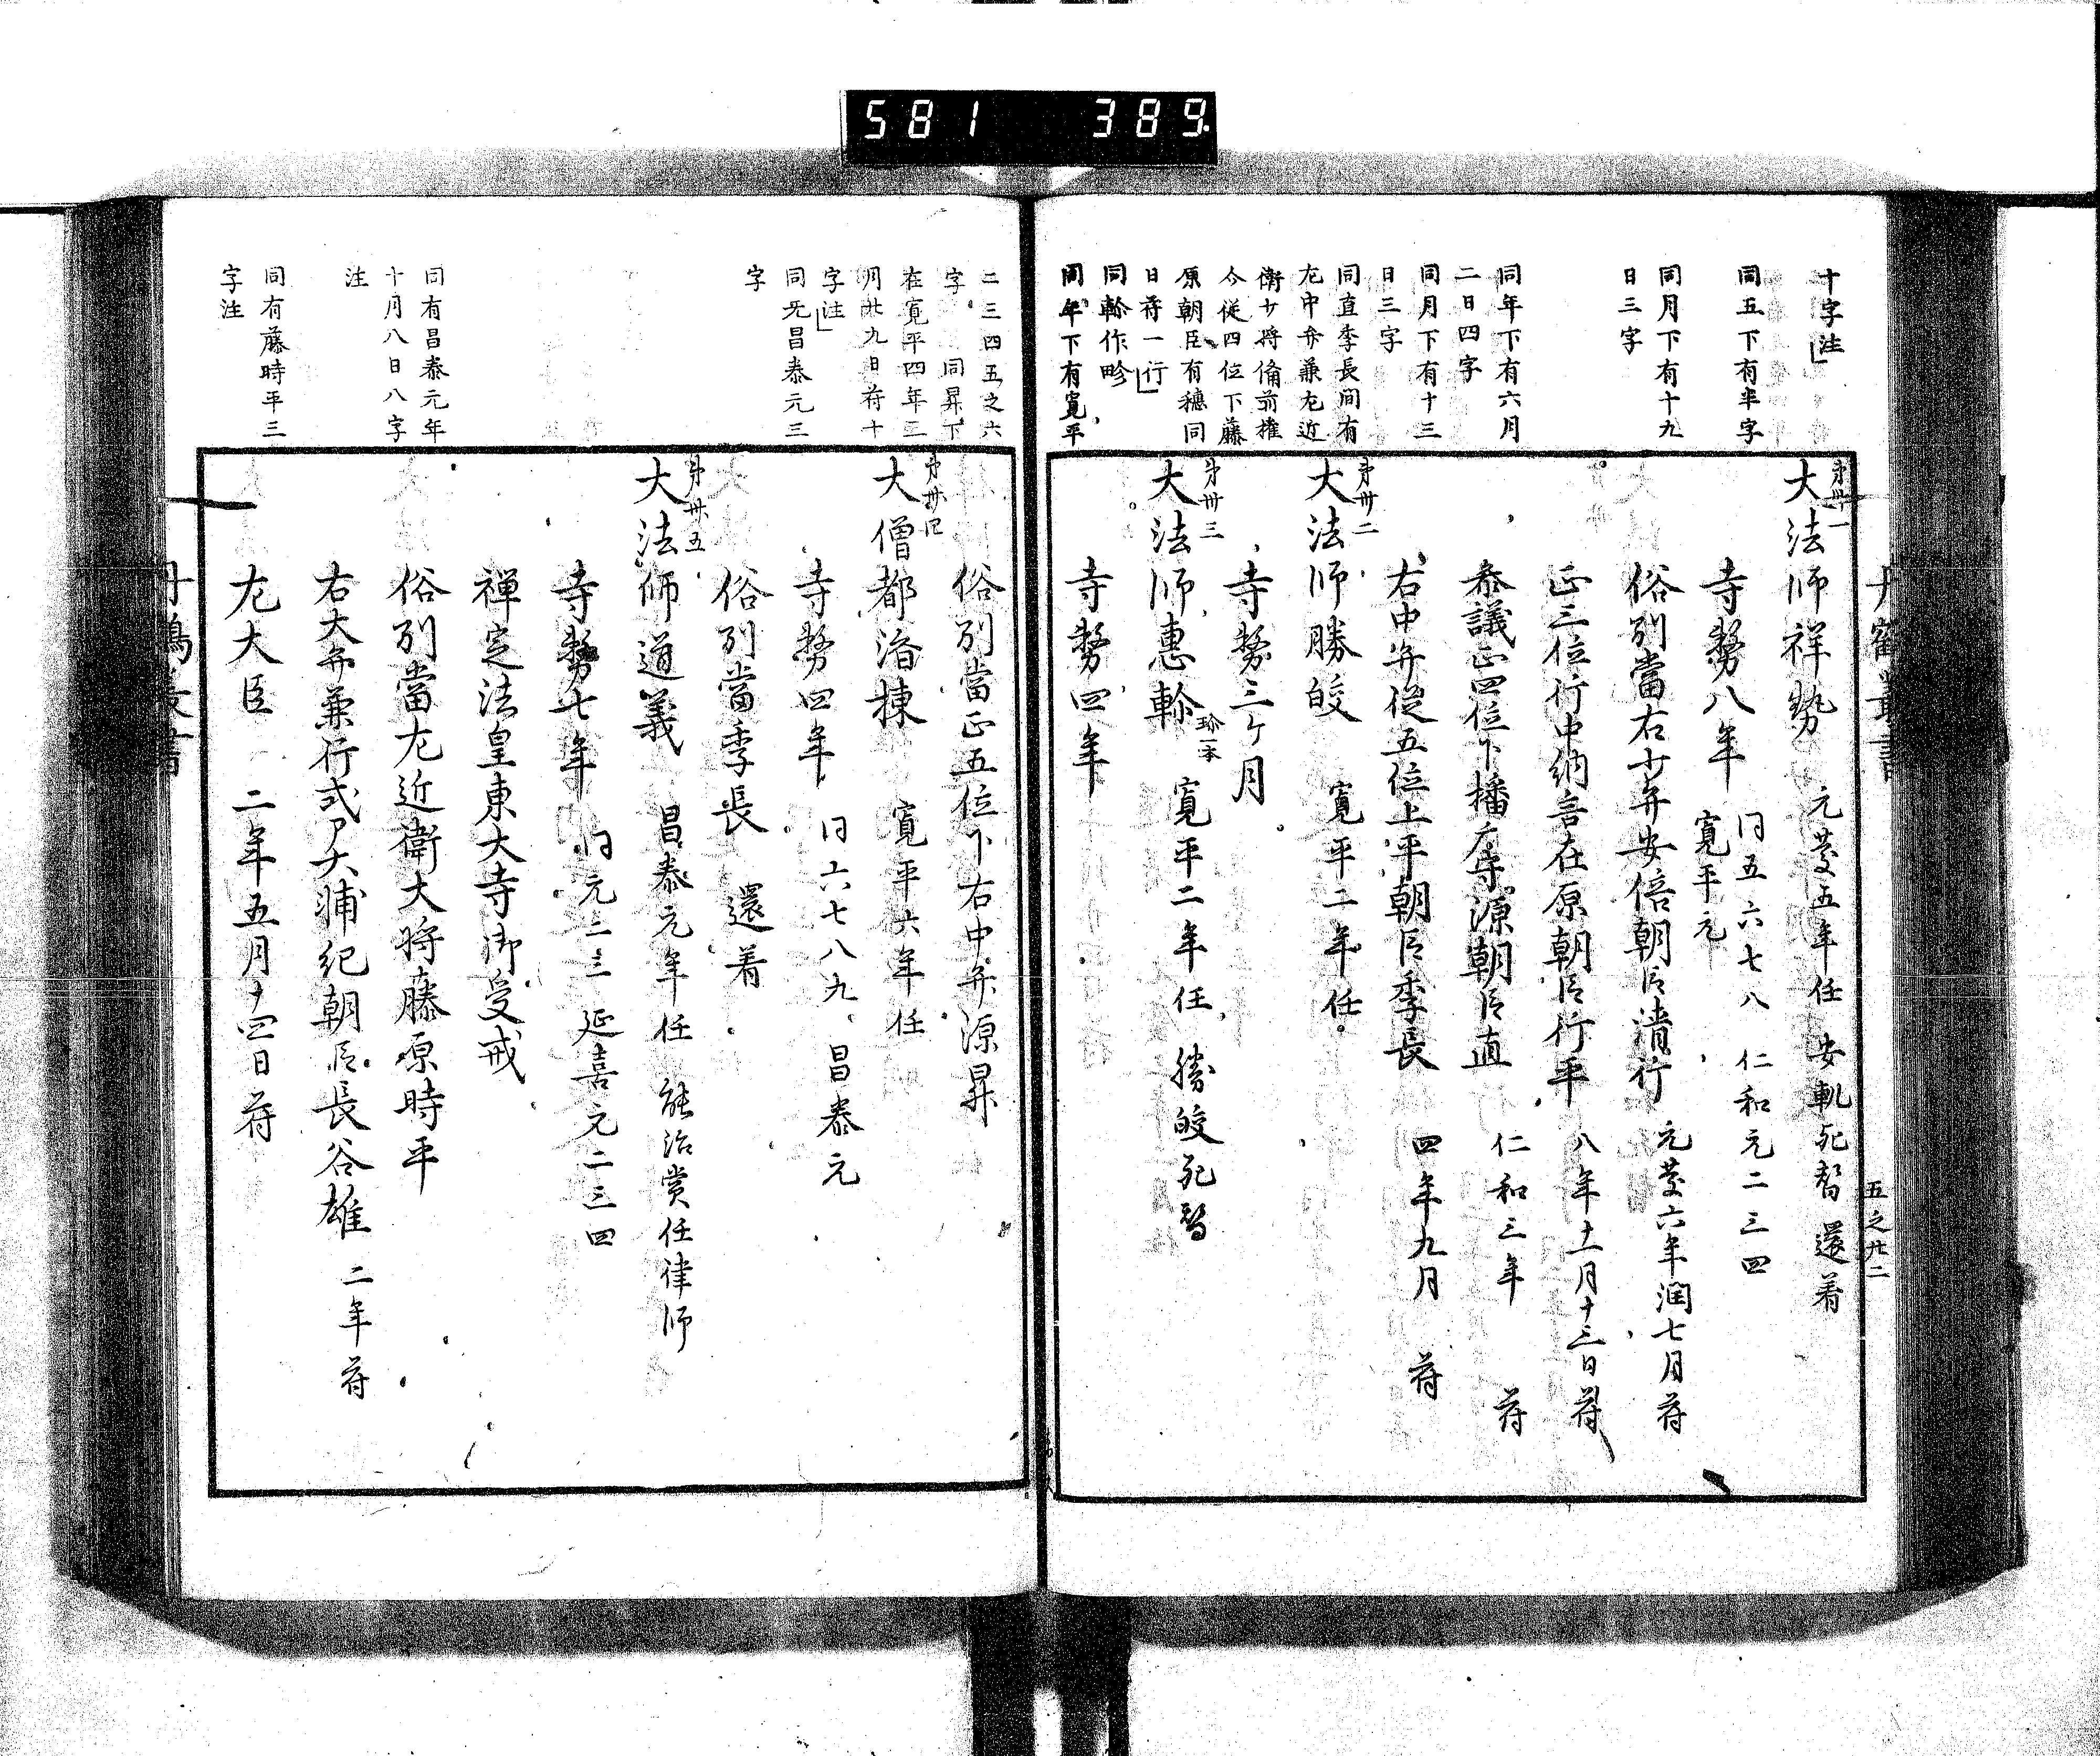 581 389
十字注
同五下有半字
同月下有十九
日三字
同年下有六月
二日四字
同月下有十三
日三字
同直季長間有
左中弁兼左近
衛少将備前権
今従四位下藤
原朝臣有穗同
日苻一行
同軡作畛
同年下有寛平
第卅一
大法師祥勢 元慶五年任 安軌死替 還着
寺務八年 同五六七八 仁和元二三四
寛平元
俗別當右少弁安倍朝臣清行 元慶六年潤七月苻
正三位行中納言在原朝臣行平 八年十一月十三日苻
参議正四位下播广守源朝臣直 仁和三年 苻
右中弁従五位上平朝臣季長 四年九月 苻
第卅二
大法師勝皎 寛平二年任
寺務三ケ月
第卅三
大法師惠軡 珎一本 寛平二年任 勝皎死替
寺務四年
丹鶴叢書
五之廿二
二三四五之六
字 同昇下
在寛平四年三
月廿九日苻十
字注
同无昌泰元三
字
同有昌泰元年
十月八日八字
注
同有藤時平三
字注
俗別當正五位下右中弁源昇
第卅四
大僧都濬棟 寛平六年任
寺務四年 同六七八九 昌泰元
俗別當季長 還着
第卅五
大法師道義 昌泰元年任 能治賞任律師
寺務七年 同元二三 延喜元二三四
禅定法皇東大寺御受戒
俗別當左近衛大将藤原時平
右大弁兼行式ア大輔紀朝臣長谷雄 二年苻
左大臣 二年五月十四日苻